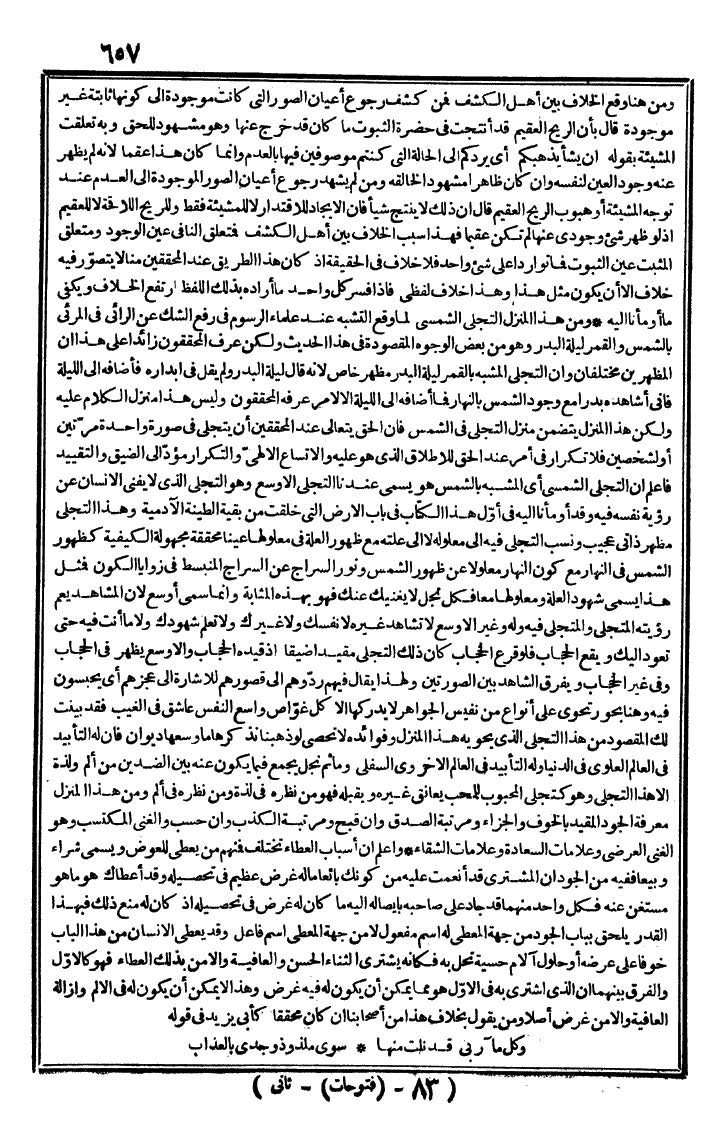 ٦٥٧
ومن هنا وقع الخلاف بين أهل الكشف فمن كشف رجوع أعيان الصور التي كانت موجودة الى كونها ثابتة غير
موجودة قال بأن الريح العقيم قد أنتجت في حضرة الثبوت ما كان قد خرج عنها وهو مشهود للحق وبه تعلقت
المشيئة بقوله ان يشأ يذهبكم أي يردكم الى الحالة التي كنتم موصوفين فيها بالعدم وانما كان هذا عقما لانه لم يظهر
عنه وجود العين لنفسه وان كان ظاهرا مشهود الخالقه ومن لم يشهد رجوع أعيان الصور الموجودة الى العدم عند
توجه المشيئة أو هبوب الريح العقيم قال ان ذلك لا ينتج شيأ فان الايجاد للاقتدار لا للمشيئة فقط وللريح اللاقحة لا للعقيم
اذ لو ظهر شئ وجودي عنها لم تكن عقيما فهذا سبب الخلاف بين أهل الكشف فتعلق النافي عين الوجود ومتعلق
المثبت عين الثبوت فما تواردا على شئ واحد فلا خلاف في الحقيقة اذ كان هذا الطريق عند المحققين منا لا يتصوّر فيه
خلاف الا أن يكون مثل هذا وهذا خلاف لفظي فاذا فسر كل واحد ما أراده بذلك اللفظ ارتفع الخلاف ويكفي
ما أومأنا اليه * ومن هذا المنزل التجلي الشمسي لما وقع التشبه عند علماء الرسوم في رفع الشك عن الرائي في المرئي
بالشمس والقمر ليلة البدر وهو من بعض الوجوه المقصودة في هذا الحديث ولكن عرف المحققون زائدا على هذا ان
المظهرين مختلفان وان التجلي المشبه بالقمر ليلة البدر مظهر خاص لانه قال ليلة البدر ولم يقل في ابداره فأضافه الى الليلة
فاني أشاهده بدرا مع وجود الشمس بالنهار فما أضافه الى الليلة الا لامر عرفه المحققون وليس هذا منزل الكلام عليه
ولكن هذا المنزل يتضمن منزل التجلي في الشمس فان الحق يتعالى عند المحققين أن يتجلى في صورة واحدة مرّتين
أو لشخصين فلا تكرار في أمر عند الحق للاطلاق الذي هو عليه والاتساع الالهيّ والتكرار مؤدّ الى الضيق والتقييد
فاعلم ان التجلي الشمسي أي المشبه بالشمس هو يسمى عندنا التجلي الاوسع وهو التجلي الذي لا يفني الانسان عن
رؤية نفسه فيه وقد أومأنا اليه في أوّل هذا الكتاب في باب الارض التي خلقت من بقية الطينة الآدمية وهذا التجلي
مظهر ذاتي عجيب ونسب التجلي فيه الى معلوله لا الى علته مع ظهور العلة في معلولها عينا محققة مجهولة الكيفية كظهور
الشمس في النهار مع كون النهار معلولا عن ظهور الشمس ونور السراج عن السراج المنبسط في زوايا الكون فمثل
هذا يسمى شهود العلة ومعلولها معا فكل مجل لا يغنيك عنك فهو بهذه المثابة وانما سمي أوسع لان المشاهد يعم
رؤيته المتجلي والمتجلى فيه وله وغير الاوسع لا تشاهد غيره لا نفسك ولا غيرك ولا تعلم شهودك ولا ما أنت فيه حتى
تعود اليك ويقع الحجاب فلا وقوع الحجاب كان ذلك التجلي مقيدا ضيقا اذ قيده الحجاب والاوسع يظهر في الحجاب
وفي غير الحجاب ويفرق الشاهد بين الصورتين ولهذا يقال فيهم ردّوهم الى قصورهم للاشارة الى عجزهم أي يحبسون
فيه وهنا بحور تحوي على أنواع من نفيس الجواهر لا يدركها الا كل غوّاص واسع النفس عاشق في الغيب فقد بينت
لك المقصود من هذا التجلي الذي يحويه هذا المنزل وفوائده لا تحصى لو ذهبنا نذكرها ما وسعها ديوان فان له التأبيد
في العالم العلوي في الدنيا وله التأبيد في العالم الاخروي السفلي وما ثم تجل يجمع فيما يكون عنه بين الضدين من ألم ولذة
الا هذا التجلي وهو كتجلي المحبوب للمحب يعانق غيره ويقبله فهو من نظره في لذة ومن نظره في ألم ومن هذا المنزل
معرفة الجود المقيد بالخوف والجزاء ومرتبة الصدق وان قبح ومرتبة الكذب وان حسب والغني المكتسب وهو
الغني العرضي وعلامات السعادة وعلامات الشقاء * واعلم ان أسباب العطاء تختلف فنهم من يعطى للعوض ويسمى شراء
وبيعا ففيه من الجود ان المشترى قد أنعمت عليه من كونك بائعا ماله غرض عظيم في تحصيله وقد أعطاك هو ما هو
مستغن عنه فكل واحد منهما قد جاد على صاحبه بايصاله اليه ما كان له غرض في تحصيله اذ كان له منع ذلك فبهذا
القدر يلحق بباب الجود من جهة المعطى له اسم مفعول لا من جهة المعطي اسم فاعل وقد يعطى الانسان من هذا الباب
خوفا على عرضه أو حلول آلام حسية تحل به فكانه يشترى الثناء الحسن والعافية والامن بذلك العطاء فهو كالاوّل
والفرق بينهما ان الذي اشترى به في الاوّل هو مما يمكن أن يكون له فيه غرض وهذا لا يمكن أن يكون له في الالم وازالة
العافية والامن غرض أصلا ومن يقول بخلاف هذا من أصحابنا ان كان محققا كأبي يزيد في قوله
وكل مآربي قد نلت منها * سوى ملذوذ وجدي بالعذاب
( ٨٣ - (فتوحات) - ثاني )